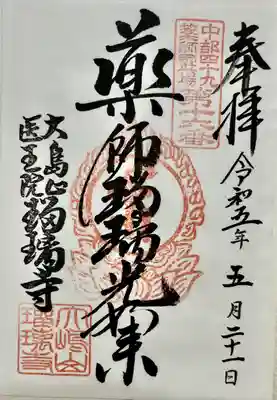 奉拝
令和五年 五月二十一日
中部四十九
薬師霊場
第十六番
薬師瑠璃光如来
大嶋山
医王院瑠璃寺
大嶋山
瑠璃寺